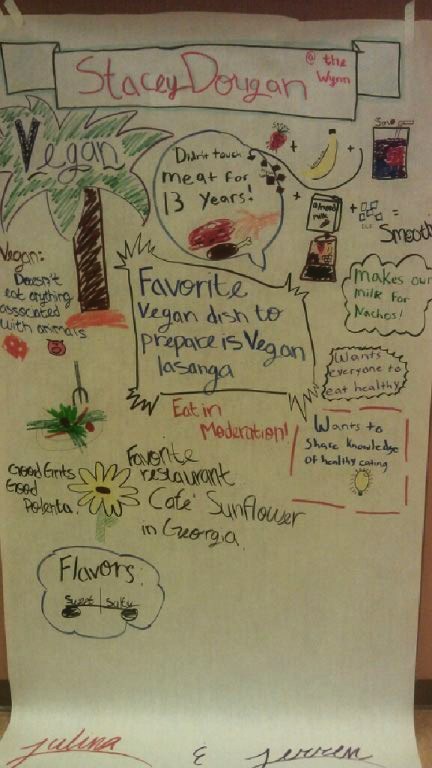 Stacey Dougan
@ the
Wynn
Vegan
Didn't touch
meat for
13 Years!
+
+
+
almond
milk
+
=
Smooth
Vegan:
Doesn't
eat anything
associated
with animals
Favorite
Vegan dish to
prepare is Vegan
lasanga
makes own
milk for
Nachos!
Wants
everyone to
eat healthy
Eat in
Moderation!
Wants to
share knowledge
of healthy eating
Good Grits
Good
Polenta
Favorite
restaurant
Café Sunflower
in Georgia
Flavors:
Sweet | Salty
Julina & Jerren